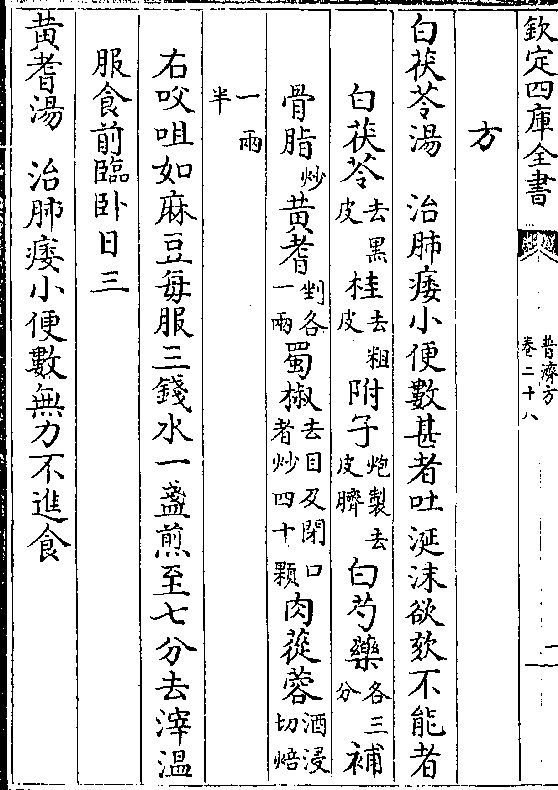 欽定四庫全書
普濟方
卷二十八
一
方
白茯苓湯　治肺痿小便數甚者吐涎沫欲欬不能者
白茯苓去黑皮桂去粗皮附子炮製去皮臍白芍藥各三分補
骨脂炒黃耆剉各一兩蜀椒去目及閉口者炒四十顆肉蓯蓉酒浸切焙
一兩半
右㕮咀如麻豆每服三錢水一盞煎至七分去滓溫
服食前臨卧日三
黃耆湯　治肺痿小便數無力不進食